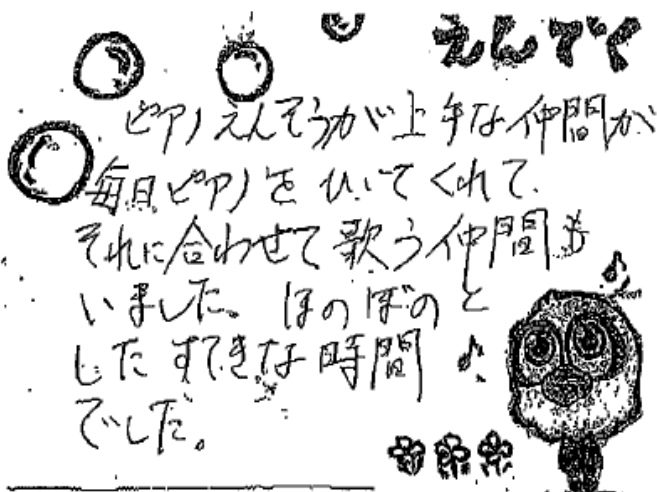 えんてく
ピアノえんそうが上手な仲間が
毎日ピアノをひいてくれて、
それに合わせて歌う仲間も
いました。ほのぼのと
したすてきな時間
でした。